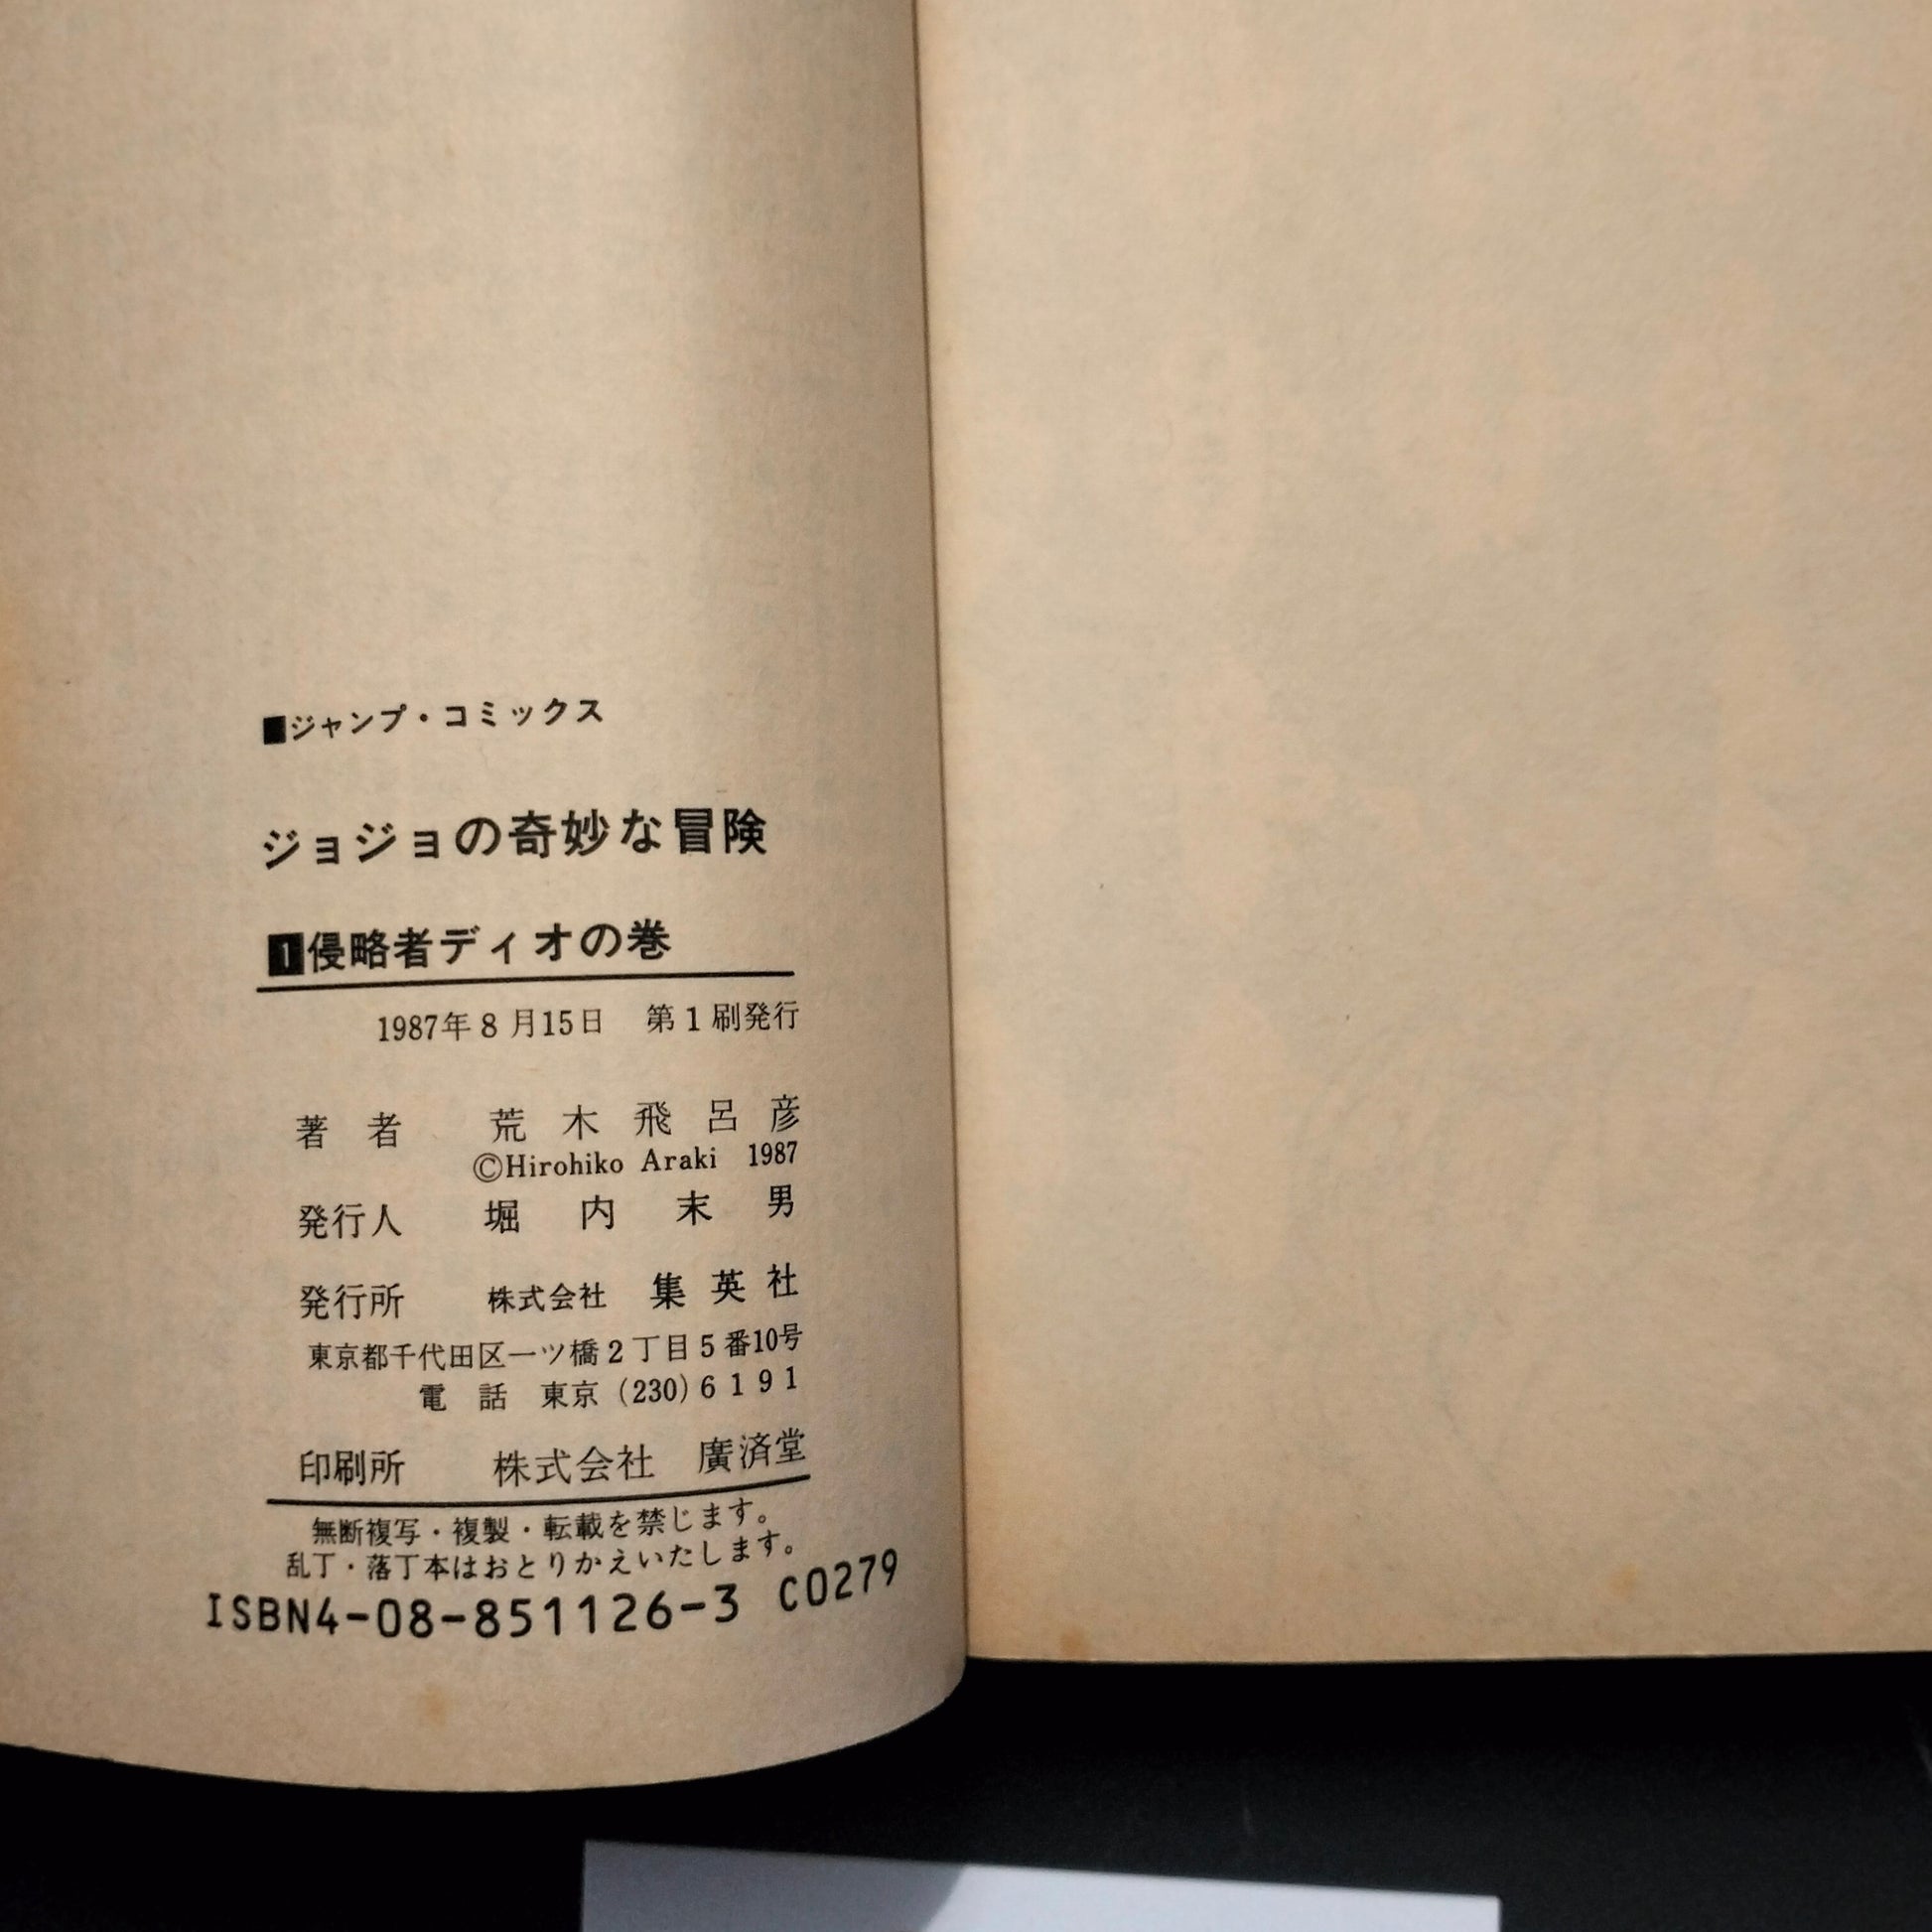 ■ジャンプ・コミックス
ジョジョの奇妙な冒険
1侵略者ディオの巻
1987年8月15日　第1刷発行
著者　荒木飛呂彦
©Hirohiko Araki 1987
発行人　堀内末男
発行所　株式会社 集英社
東京都千代田区一ツ橋2丁目5番10号
電話 東京 (230)6191
印刷所　株式会社 廣済堂
無断複写・複製・転載を禁じます。
乱丁・落丁本はおとりかえいたします。
ISBN4-08-851126-3 C0279